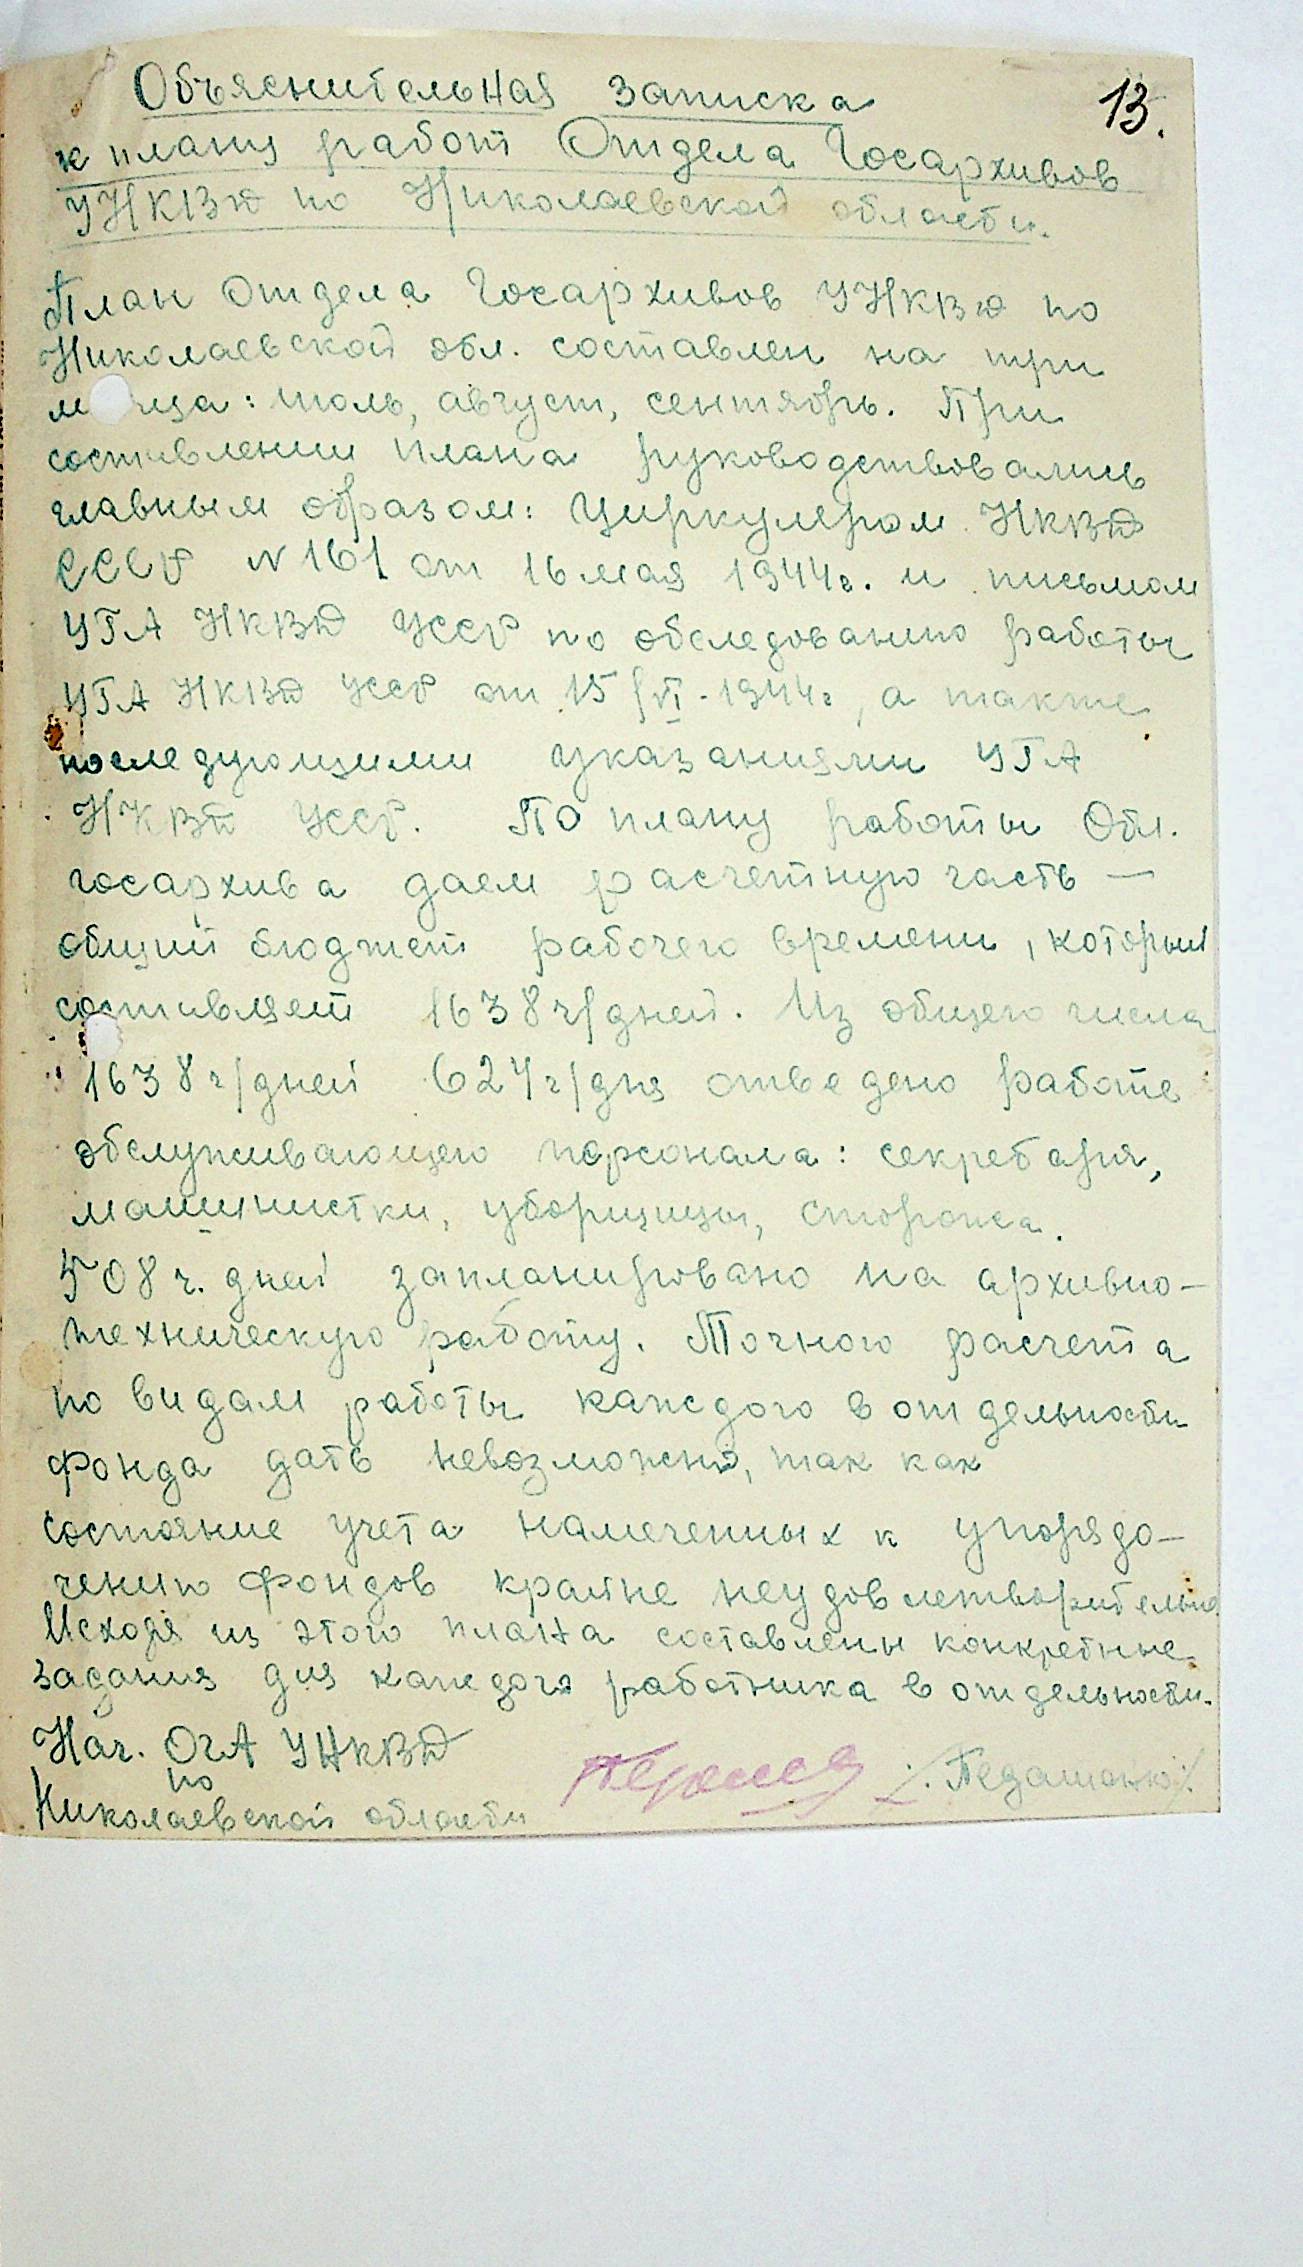 13.
Объяснительная записка
к плану работ Отдела Госархивов
УНКВД по Николаевской области.
План Отдела Госархивов УНКВД по
Николаевской обл. составлен на три
м яца: июль, август, сентябрь. При
составлении плана руководствовались
главным образом: Циркуляром НКВД
СССР N 161 от 16 мая 1944 г. и письмом
УГА НКВД УССР по обследованию работы
УГА НКВД УССР от 15/VI-1944 г, а также
последующими указаниями УГА
НКВД УССР. По плану работы Обл.
госархива даем расчетную часть —
общий бюджет рабочего времени, который
составляет 1638 ч/дней. Из общего числа
1638 ч/дней 624 ч/дня отведено работе
обслуживающего персонала: секретаря,
машинистки, уборщицы, сторожа.
508 ч. дней запланировано на архивно-
техническую работу. Точного расчета
по видам работы каждого в отдельности
фонда дать невозможно, так как
состояние учета намеченных к упорядо-
чению фондов крайне неудовлетворительно
Исходя из этого плана составлены конкретные
задания для каждого работника в отдельности.
Нач. ОГА УНКВД
по
Николаевской области
/. Педашенко/.